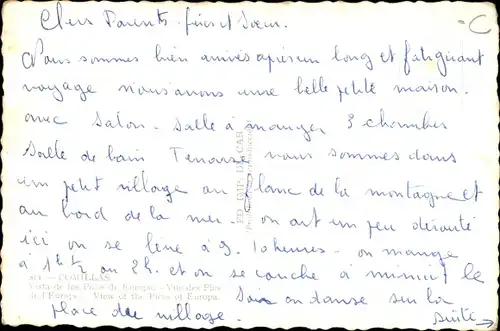 Chers Parents. frères et Sœur.
-C
Nous sommes bien arrivés après un long et fatiguant
voyage nous avons une belle petite maison.
avec Salon. Salle à manger 3 chambres
Salle de bain Terrasse nous sommes dans
un petit village au flanc de la montagne et
au bord de la mer. on est un peu dérouté
ici on se lève à 9. 10 heures. on mange
à 1h½ ou 2h. et on se couche à minuit le
Soir on danse sur la
place du village. suite →
COMILLAS
Vista de los Picos de Europa.
de l'Europe. View of the Picos of Europa.